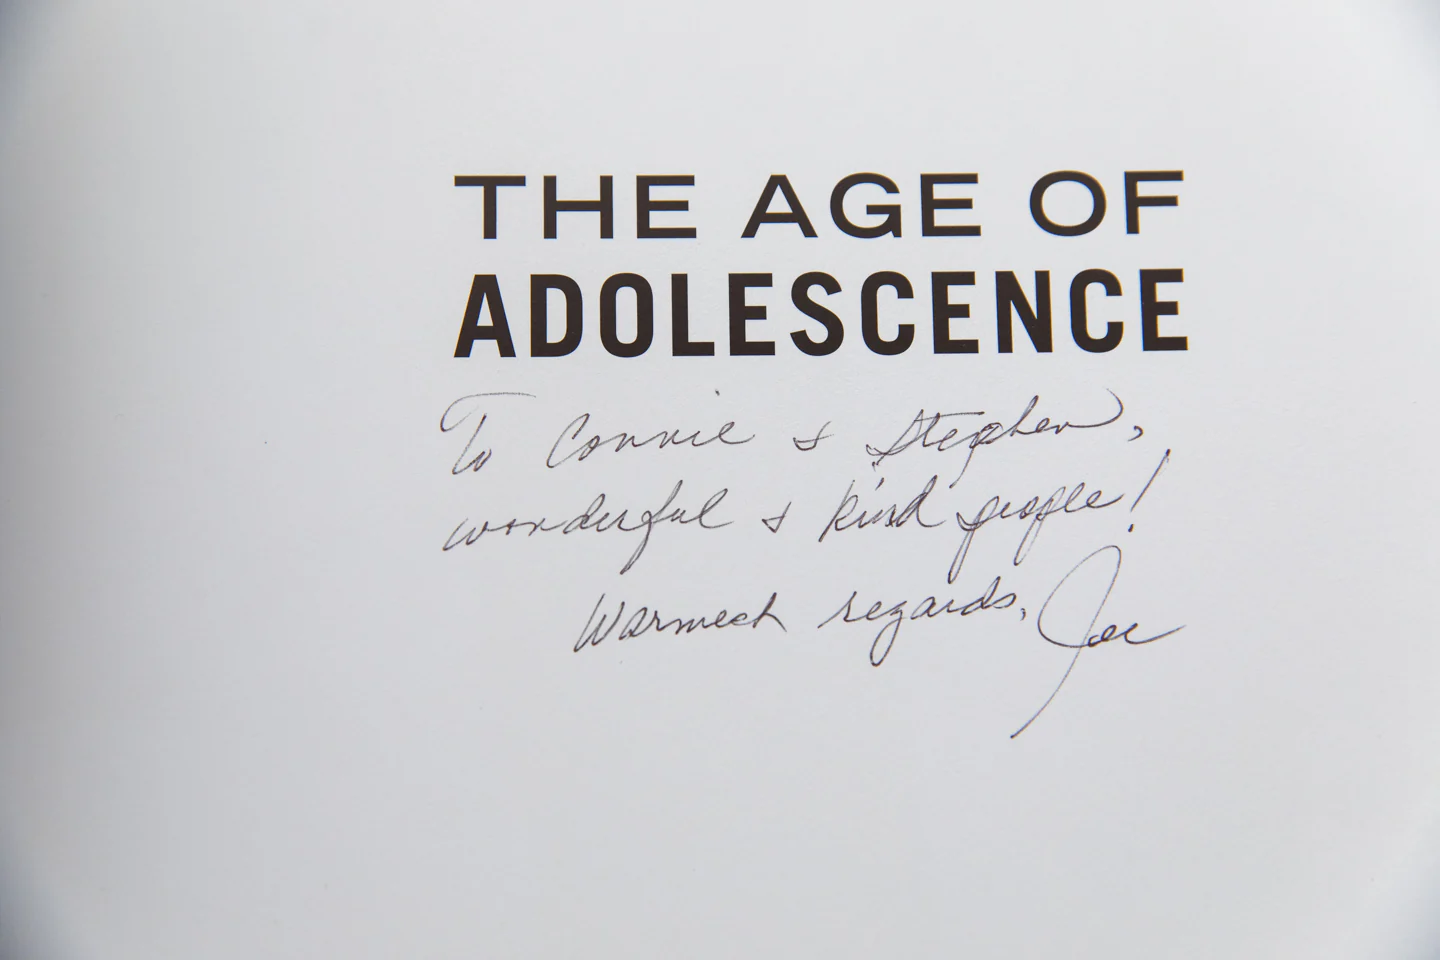 THE AGE OF
ADOLESCENCE
To Connie & Stephen,
wonderful & kind people!
Warmest regards, Joe